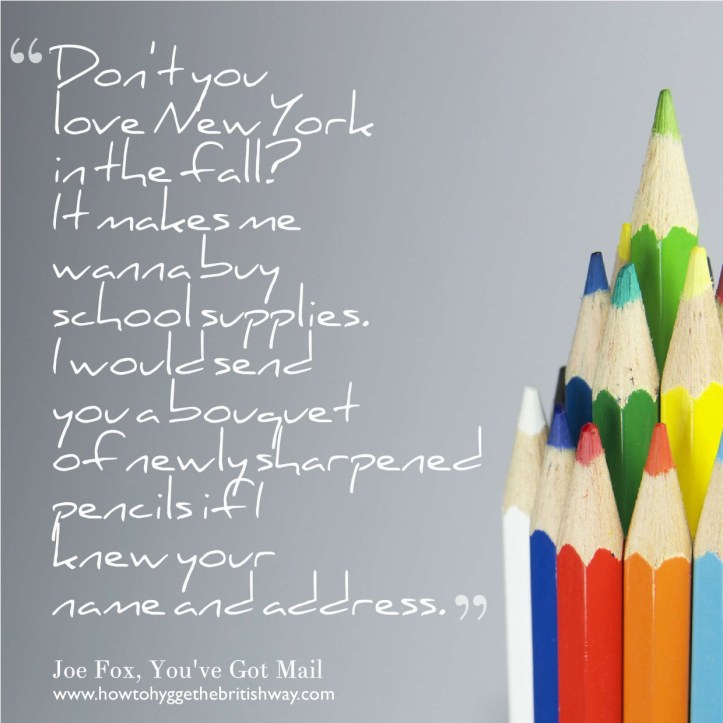 “Don't you
love New York
in the fall?
It makes me
wanna buy
school supplies.
I would send
you a bouquet
of newly sharpened
pencils if I
knew your
name and address.”
Joe Fox, You've Got Mail
www.howtohyggethebritishway.com